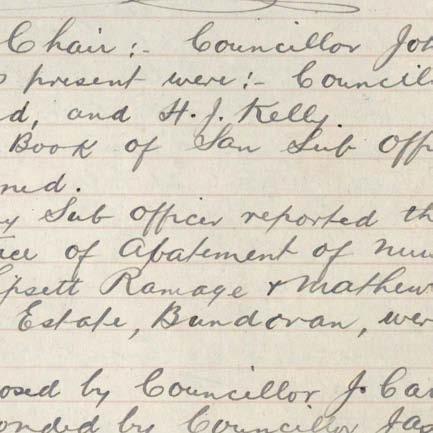 Chair :- Councillor Joh
present were :- Council
d, and H. J. Kelly.
Book of San Sub Offi
ned.
y Sub officer reported th
ice of Abatement of nui
ipsett Ramage & Mathew
Estate, Bundoran, wer
osed by Councillor J. Car
onded by Councillor Jas